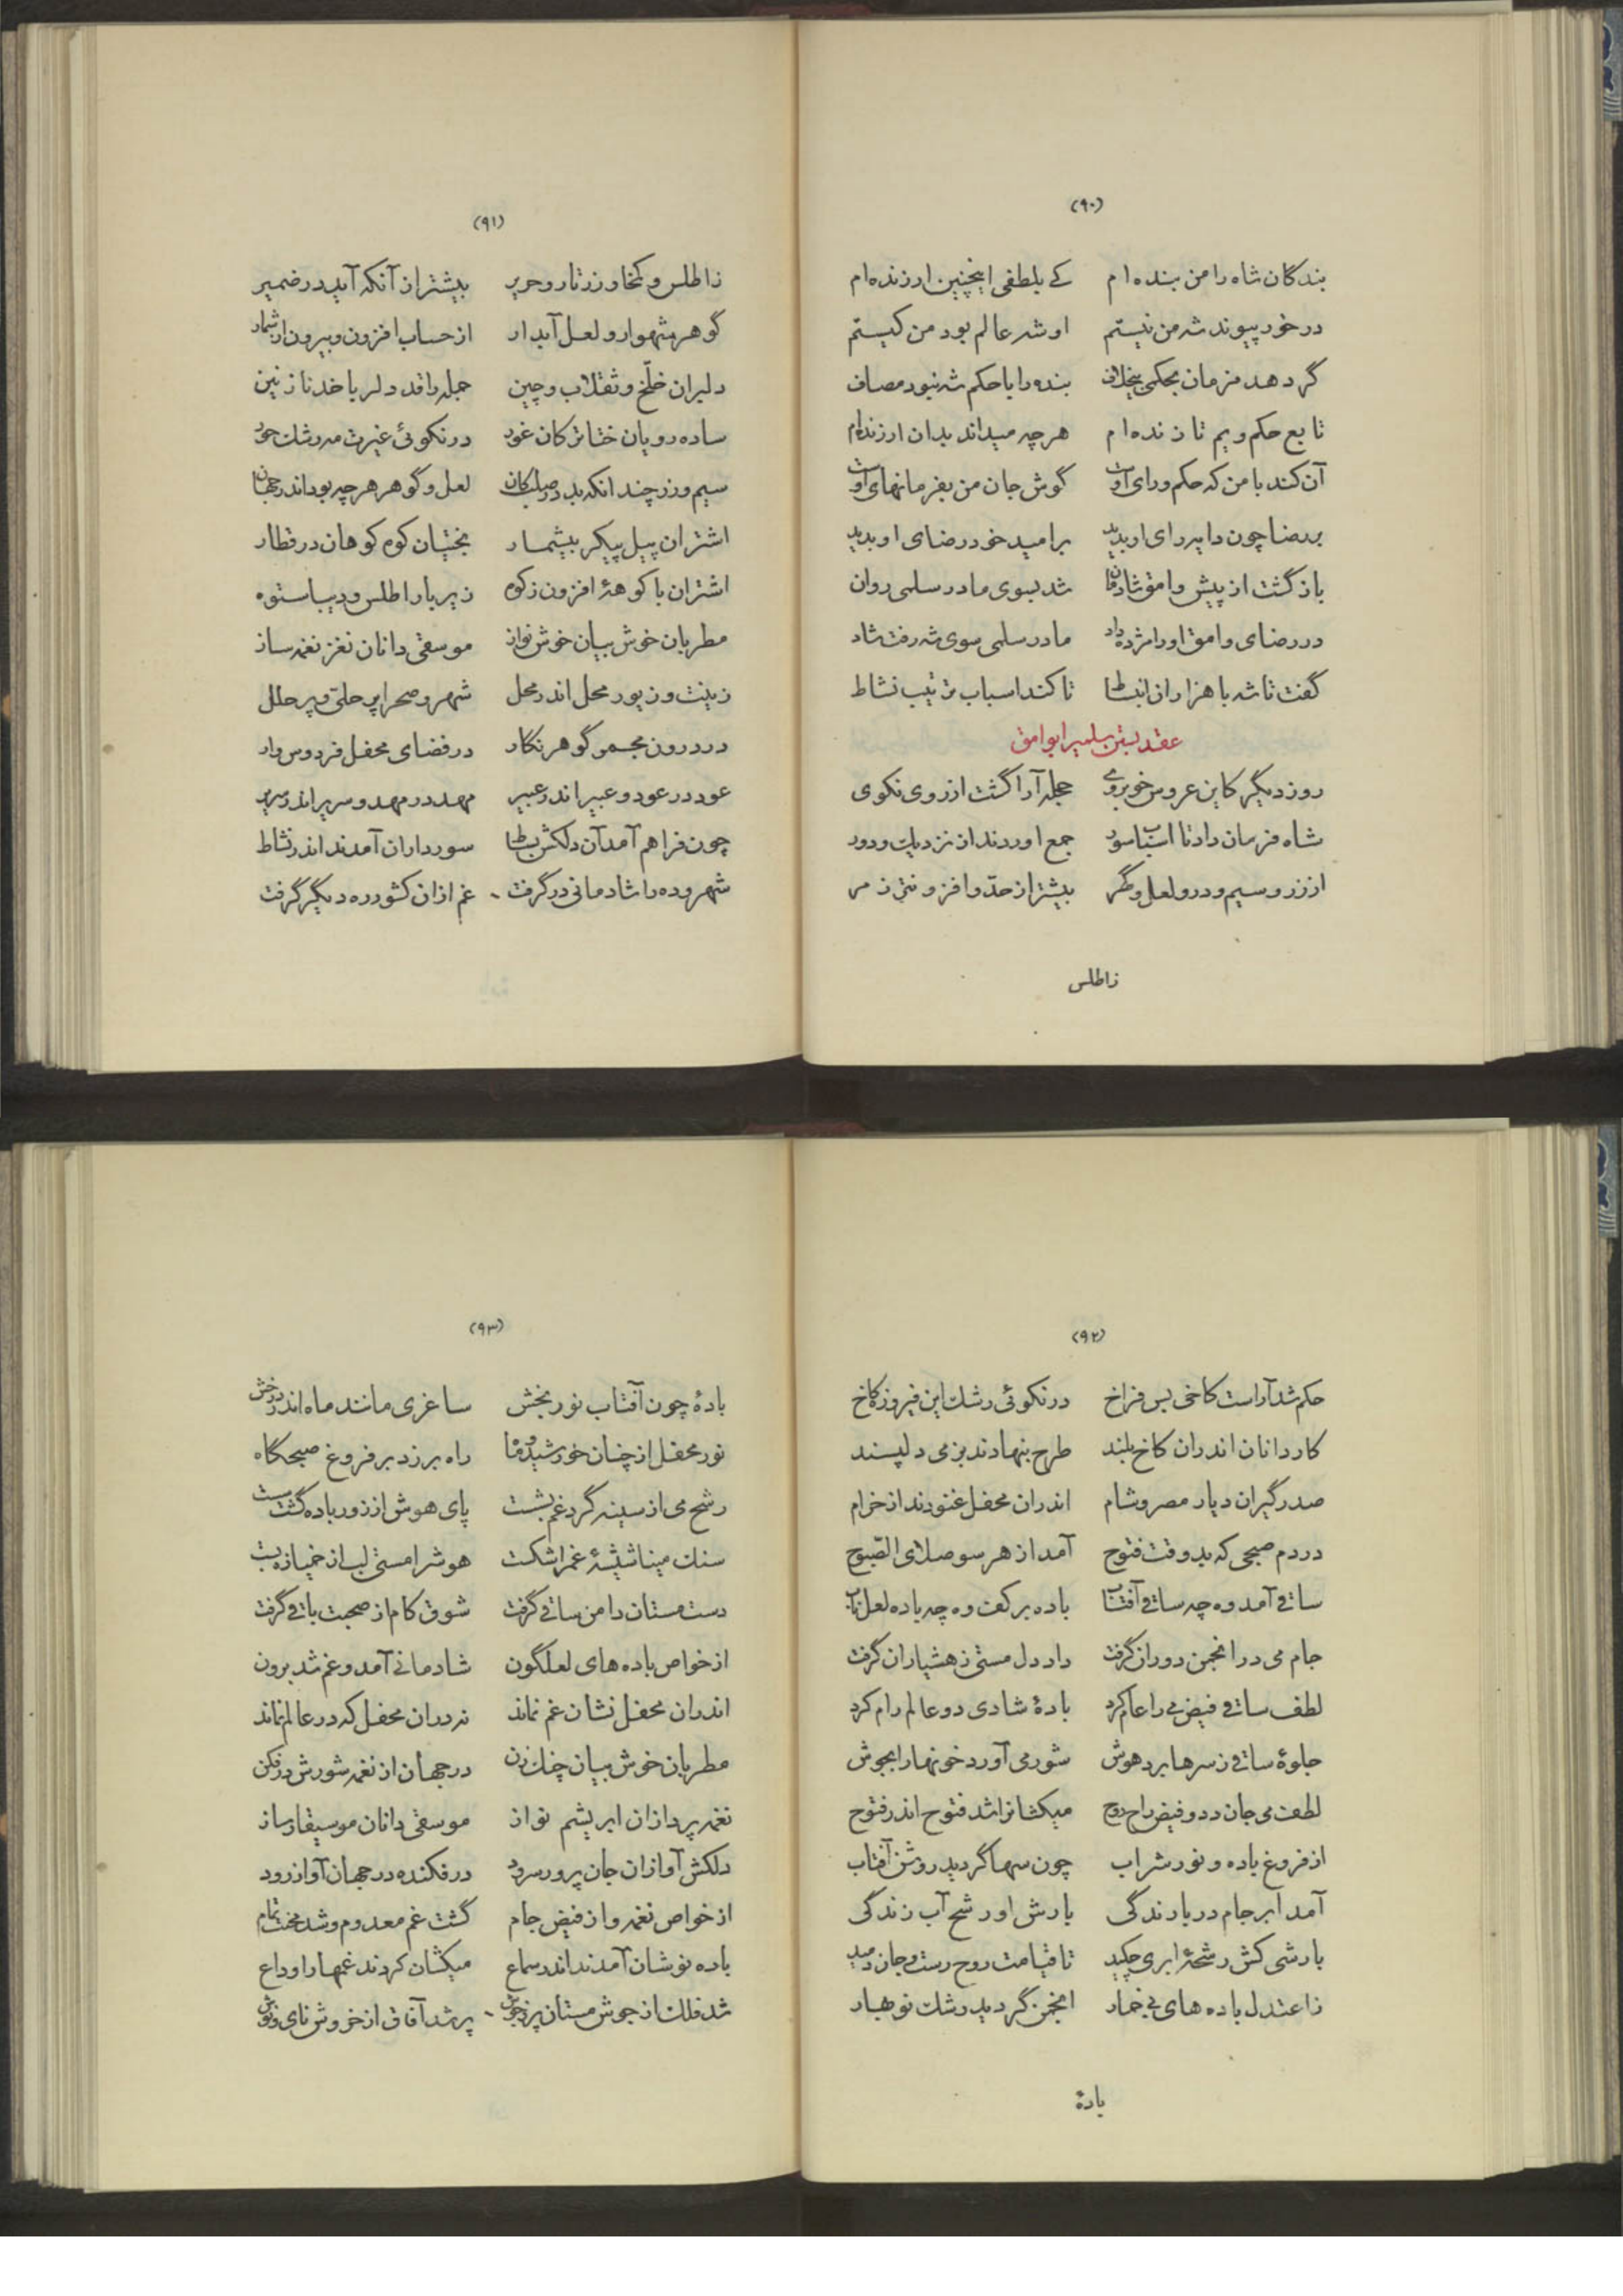 (۹۰)
بندگان شاه را من بنده‌ام کے بلطفی اینچنین ارزنده‌ام
در خور پیوند شه من نیستم او شه عالم بود من کیستم
گر دهد فرمان بحکمی بیخلاف بنده را با حکم شه نبود مصاف
تابع حکم ویم تا زنده‌ام هر چه میداند بدان ارزنده‌ام
آن کند با من که حکم و رای اوست گوش جان من بفرمانهای اوست
بر رضا چون دایه رای او بدید بر امید خود رضای او بدید
باز گشت از پیش وامق شادمان شد بسوی مادر سلمی روان
در رضای وامق او را مژده داد مادر سلمی سوی شه رفت شاد
گفت تا شه با هزاران انبساط تا کند اسباب ترتیب نشاط
عقد بستن سلمی را بوامق
روز دیگر کاین عروس خوبروے حجله آرا گشت از روی نکوی
شاه فرمان داد تا اسباب سور جمع اوردند از نزدیک و دور
از زر و سیم و در و لعل و گهر بیشتر از حدّ و افزونتر ز مر
زاطلس
(۹۱)
زاطلس و کمخا و زرتار و حریر بیشتر از آنکه آید در ضمیر
گوهر شهوار و لعل آبدار از حساب افزون و بیرون از شمار
دلبران خلّخ و ثقلاب و چین جمله را قد دلربا خد نازنین
ساده رویان ختا ترکان غور در نکوئی غیرت مه رشک حور
سیم و زر چند انکه بد در صلب کان لعل و گوهر هر چه بود اندر جهان
اشتران پیل پیکر بیشمار بختیان کوه کوهان در قطار
اشتران با کوههٔ افزون ز کوه زیر بار اطلس و دیبا ستوه
مطربان خوش بیان خوش نواز موسقی دانان نغز نغمه ساز
زینت و زیور محل اندر محل شهر و صحرا پر حلی و پر حلل
در درون مجمر گوهر نگار در فضای محفل فردوس وار
عود در عود و عبیر اندر عبیر مهد در مهد و سریر اندر سریر
چون فراهم آمد آن دلکش بساط سورداران آمدند اندر نشاط
شهر و ده را شادمانی در گرفت غم ازان کشور ره دیگر گرفت
(۹۲)
حکم شد آراست کاخی بس فراخ در نکوئی رشک این فیروزه کاخ
کاردانان اندران کاخ بلند طرح بنهادند بزمی دلپسند
صدرگیران دیار مصر و شام اندران محفل غنودند از خرام
در دم صبحی که بد وقت فتوح آمد از هر سو صلای الصّبوح
ساقی آمد وه چه ساقی آفتاب باده بر کف وه چه باده لعل ناب
جام می در انجمن دوران گرفت داد دل مستی ز هشیاران گرفت
لطف ساقی فیض مے را عام کرد بادهٔ شادی دو عالم رام کرد
جلوهٔ ساقی ز سرها برد هوش شور می آورد خونها را بجوش
لطف می جان دد و فیض راح روح میکشانرا شد فتوح اندر فتوح
از فروغ باده و نور شراب چون سها گردید روشن آفتاب
آمد ابر جام در بارندگی بارش او رشح آب زندگی
بارشی کش رشحهٔ ابری چکید تا قیامت روح رست و جان دمید
زاعتدل باده های بی خمار انجمن گردید رشک نوبهار
بادهٔ
(۹۳)
بادهٔ چون آفتاب نور بخش ساغری مانند ماه اندر درخش
نور محفل از چنان خورشید و ماه راه بر زد بر فروغ صبحگاه
رشح می از سینه گرد غم بشست پای هوش از زور باده گشت سست
سنک مینا شیشهٔ غمرا شکست هوشرا مستی لب از خمیازه بست
دست مستان دامن ساقی گرفت شوق کام از صحبت باقی گرفت
از خواص باده های لعلگون شادمانی آمد و غم شد برون
اندران محفل نشان غم نماند نه دران محفل که در عالم نماند
مطربان خوش بیان چنک زن در جهان از نغمه شورش در فکن
نغمه پردازان ابریشم نواز موسقی دانان موسیقار ساز
دلکش آوازان جان پرور سرود در فکنده در جهان آواز رود
از خواص نغمه و از فیض جام گشت غم معدوم و شد محنت تمام
باده نوشان آمدند اندر سماع میکشان کردند غمها را وداع
شد فلک از جوش مستان پر ز جوش پر شد آفاق از خروش نای و نوش